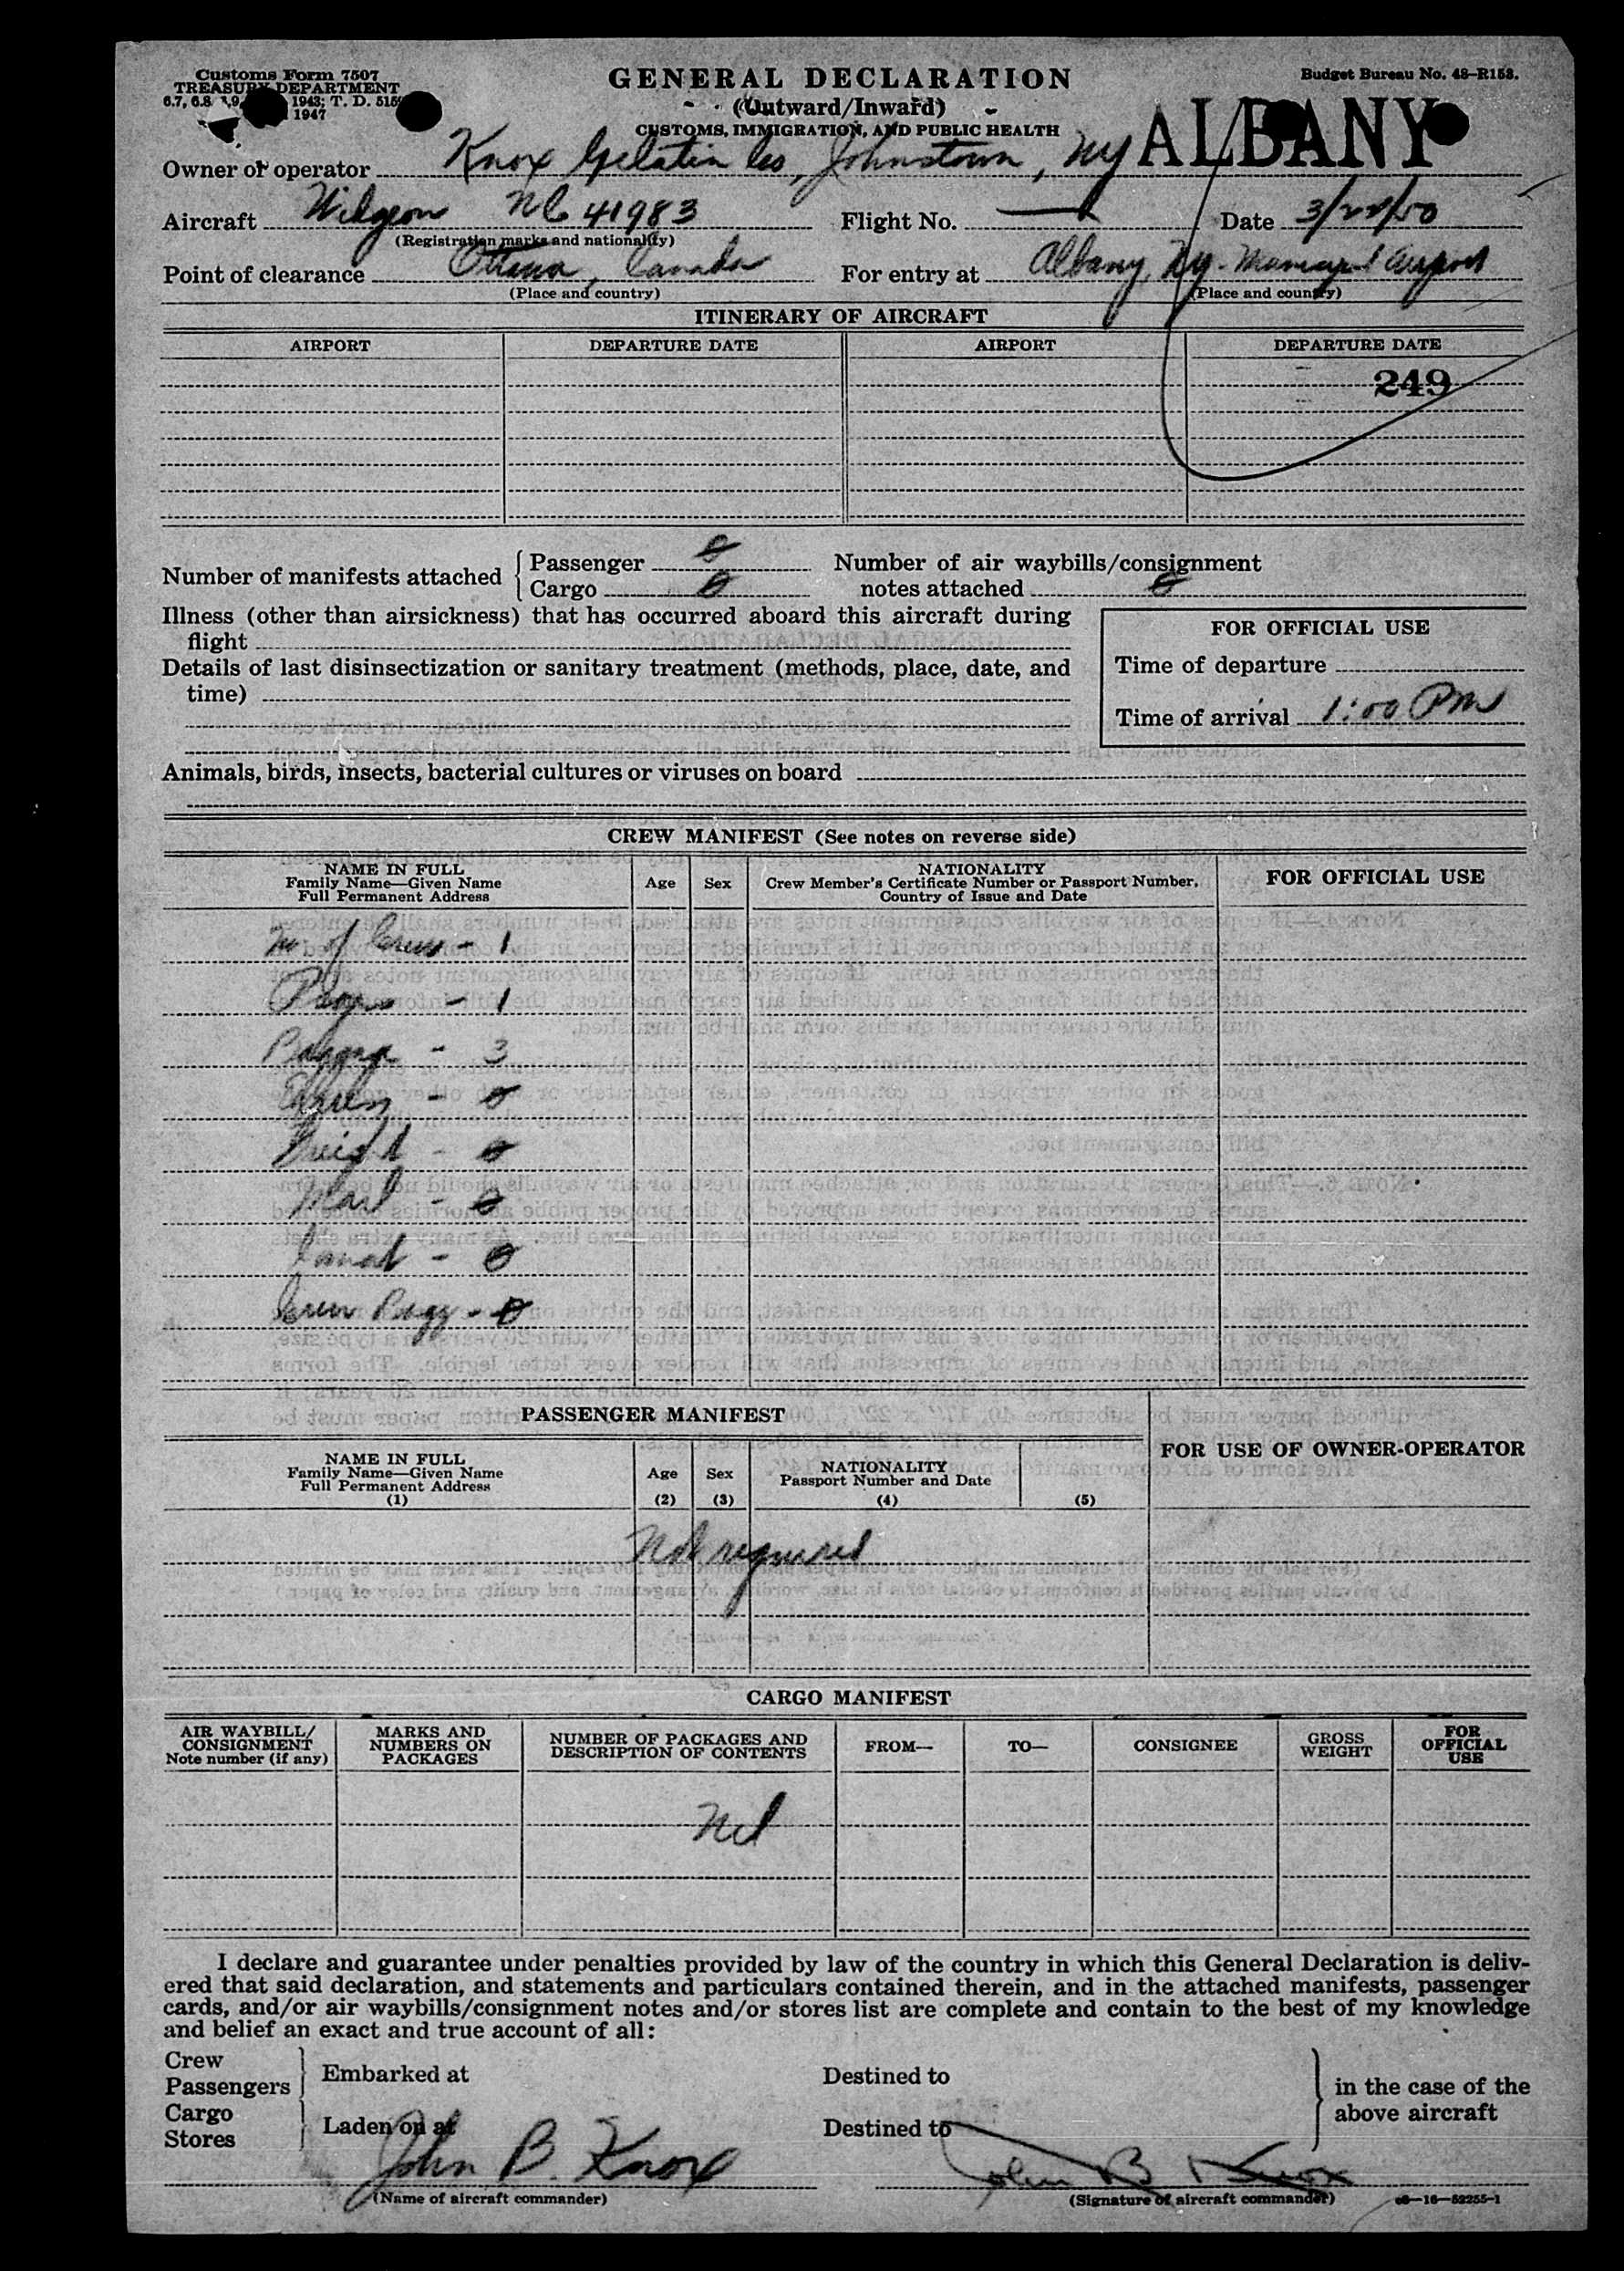 Customs Form 7507
TREASURY DEPARTMENT
6.7, 6.8 1943; T. D. 515
1947
GENERAL DECLARATION
(Outward/Inward)
CUSTOMS, IMMIGRATION, AND PUBLIC HEALTH
Budget Bureau No. 48-R153.
ALBANY
Owner or operator Knox Gelatin Co, Johnstown, NY
Aircraft Widgeon NC 41983 Flight No. — Date 3/22/50
(Registration marks and nationality)
Point of clearance Ottawa, Canada For entry at Albany, Ny - Municipal Airport
(Place and country) (Place and country)
ITINERARY OF AIRCRAFT
AIRPORT DEPARTURE DATE AIRPORT DEPARTURE DATE
249
Number of manifests attached { Passenger 0 Number of air waybills/consignment
Cargo 0 notes attached 0
Illness (other than airsickness) that has occurred aboard this aircraft during
flight
Details of last disinsectization or sanitary treatment (methods, place, date, and
time)
FOR OFFICIAL USE
Time of departure
Time of arrival 1:00 PM
Animals, birds, insects, bacterial cultures or viruses on board
CREW MANIFEST (See notes on reverse side)
NAME IN FULL
Family Name—Given Name
Full Permanent Address
Age Sex
NATIONALITY
Crew Member's Certificate Number or Passport Number,
Country of Issue and Date
FOR OFFICIAL USE
No of Crew - 1
- 1
Baggage - 3
- 0
Freight - 0
Mail - 0
- 0
Crew Bagg - 0
PASSENGER MANIFEST
NAME IN FULL
Family Name—Given Name
Full Permanent Address
(1)
Age
(2)
Sex
(3)
NATIONALITY
Passport Number and Date
(4) (5)
FOR USE OF OWNER-OPERATOR
Not required
CARGO MANIFEST
AIR WAYBILL/
CONSIGNMENT
Note number (if any)
MARKS AND
NUMBERS ON
PACKAGES
NUMBER OF PACKAGES AND
DESCRIPTION OF CONTENTS
FROM— TO— CONSIGNEE
GROSS
WEIGHT
FOR
OFFICIAL
USE
Nil
I declare and guarantee under penalties provided by law of the country in which this General Declaration is deliv-
ered that said declaration, and statements and particulars contained therein, and in the attached manifests, passenger
cards, and/or air waybills/consignment notes and/or stores list are complete and contain to the best of my knowledge
and belief an exact and true account of all:
Crew
Passengers } Embarked at Destined to
Cargo
Stores } Laden on at Destined to
} in the case of the
above aircraft
John B. Knox John B Knox
(Name of aircraft commander) (Signature of aircraft commander) 16—52255-1